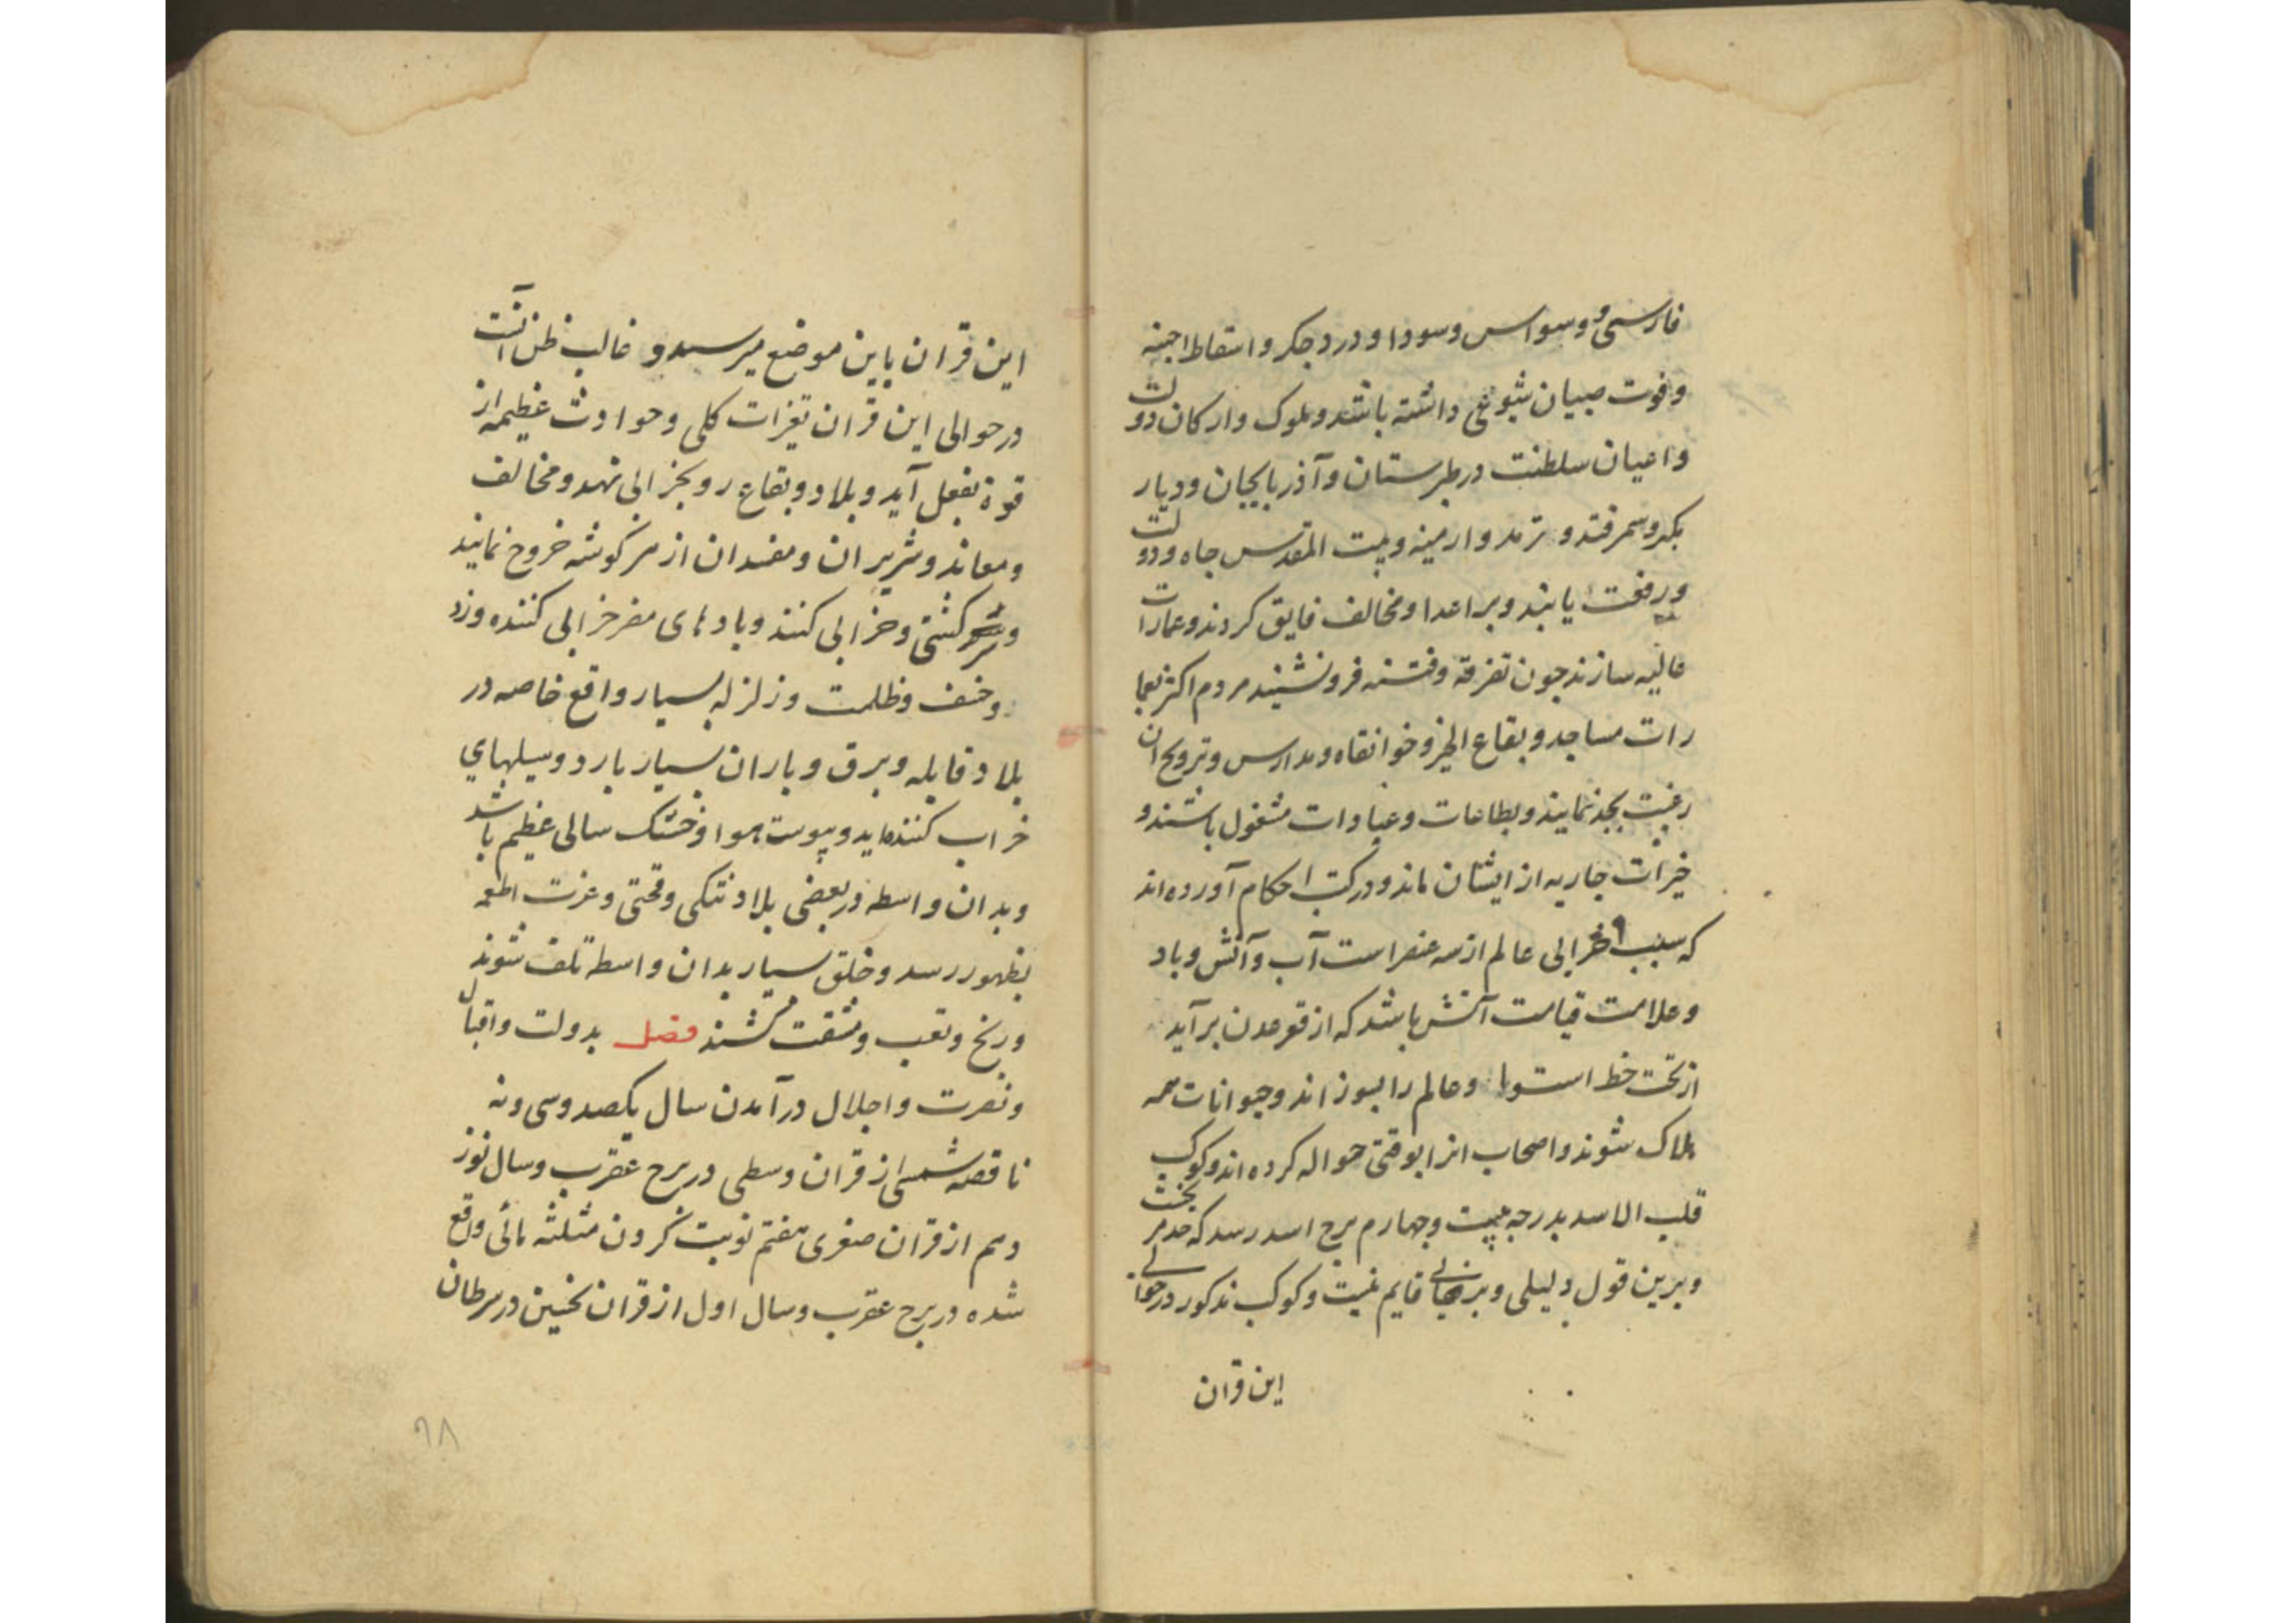 فارسی و وسواس و سودا و درد جکر و اسقاط اجنه
و فوت صبیان شیوعی داشته باشد و ملوک و ارکان دولت
و اعیان سلطنت در طبرستان و آذربایجان و دیار
بکر و سمرقند و ترمد و ارمینه و بیت المقدس جاه و دولت
و رفعت یابند و بر اعدا و مخالف فایق کردند و عمارات
عالیه سازند چون تفرقه و فتنه فرو نشیند مردم اکثر بعما
رات مساجد و بقاع الخیر و خوانقاه و مدارس و ترویج ان
رغبت بجد نمایند و بطاعات و عبادات مشغول باشند و
خیرات جاریه از ایشان ماند و در کتب احکام آورده اند
که سبب خرابی عالم از سه عنصر است آب و آتش و باد
و علامت قیامت آتش باشد که از قعر عدن برآید
از تحت خط استوا و عالم را بسوزاند و حیوانات همه
هلاک شوند و اصحاب انرا بوقتی حواله کرده اند و کوکب
قلب الاسد بدرجه بیست و چهارم برج اسد رسد که حد مریخست
و برین قول دلیلی و برهانی قایم نیست و کوکب مذکور در حوالی
این قران
این قران باین موضع میرسد و غالب ظن آنست
در حوالی این قران تغیرات کلی و حوادث عظیمه از
قوة بفعل آید و بلاد و بقاع رو بخرابی نهد و مخالف
و معاند و شریران و مفسدان از هر کوشه خروج نمایند
و سرکشی و خرابی کنند و بادهای مضر خرابی کننده وزد
و خسف و ظلمت و زلزله بسیار واقع خاصه در
بلاد قابله و برق و باران بسیار بارد و سیلهای
خراب کننده اید و یبوست هوا و خشک سالی عظیم باشد
و بدان واسطه در بعضی بلاد تنکی و قحتی و عزت اطعمه
بظهور رسد و خلق بسیار بدان واسطه تلف شوند
و رنج و تعب و مشقت کشند فصل بدولت و اقبال
و نصرت و اجلال درآمدن سال یکصد و سی و نه
ناقصه شمسی از قران وسطی در برج عقرب و سال نوز
دهم از قران صغری هفتم نوبت کردن مثلثه مائی واقع
شده در برج عقرب و سال اول از قران نحسین در سرطان
۶۸